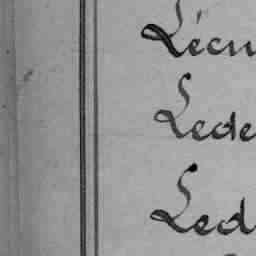 Lécu
Lede
Led